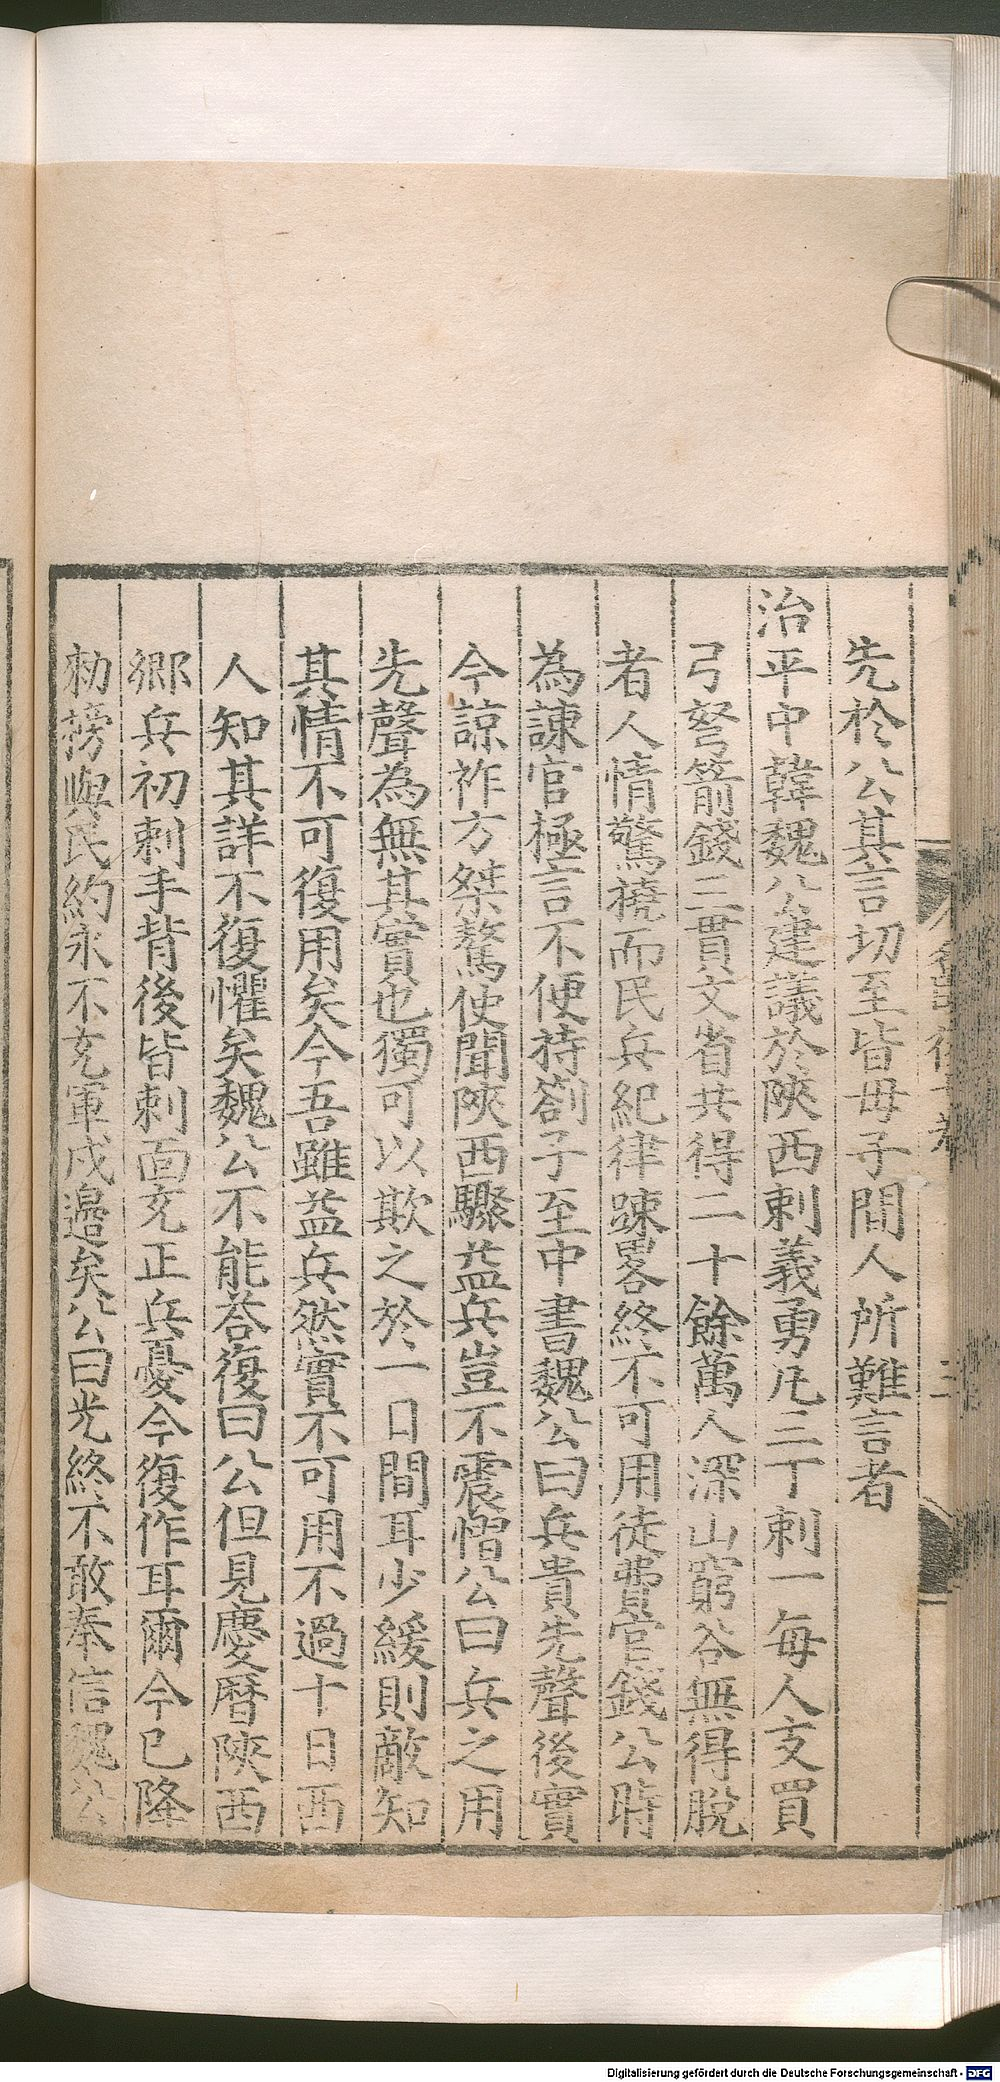 先於公其言切至皆毋子間人所難言者
治平中韓魏公建議於陝西刺義勇凡三丁刺一每人支買
弓弩箭錢三貫文省共得二十餘萬人深山窮谷無得脫
者人情驚撓而民兵紀律踈畧終不可用徒費官錢公時
為諫官極言不便持劄子至中書魏公曰兵貴先聲後實
今諒祚方桀驁使聞陝西驟益兵豈不震慴公曰兵之用
先聲為無其實也獨可以欺之於一日間耳少緩則敵知
其情不可復用矣今吾雖益兵然實不可用不過十日西
人知其詳不復懼矣魏公不能荅復曰公但見慶曆陝西
鄉兵初刺手背後皆刺面充正兵憂今復作耳爾今已降
勑榜與民約永不充軍戍邉矣公曰光終不敢奉信魏公
Digitalisierung gefördert durch die Deutsche Forschungsgemeinschaft - DFG